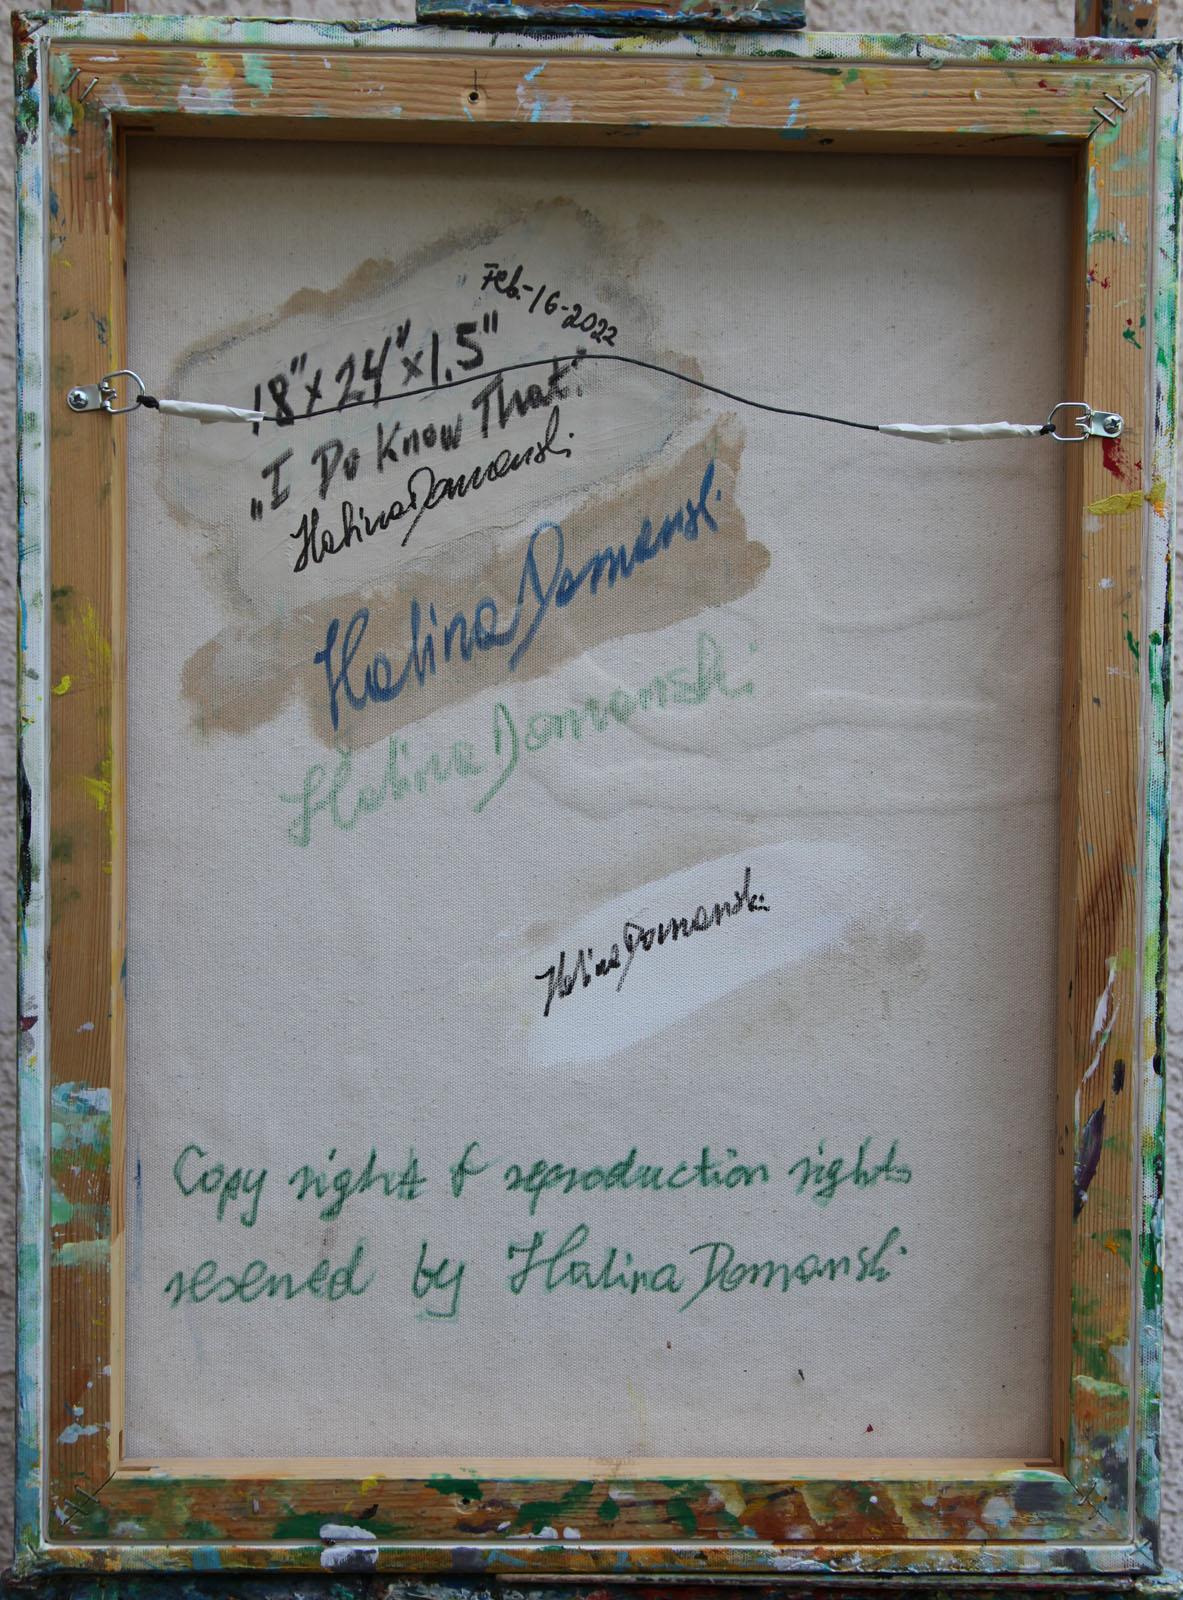 Feb-16-2022
18"x24"x1.5"
„I Do Know That."
Halina Domanski
Halina Domanski
Halina Domanski
Halina Domanski
Copy right & reproduction rights
reserved by Halina Domanski